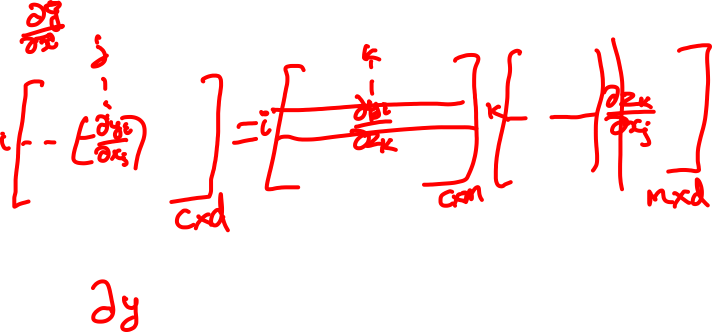 ∂ȳ/∂x̄
j k
i [ -- (∂yi/∂xj) ] c×d = i [ ∂yi/∂zk ] c×m k [ — ∂zk/∂xj ] m×d
∂y